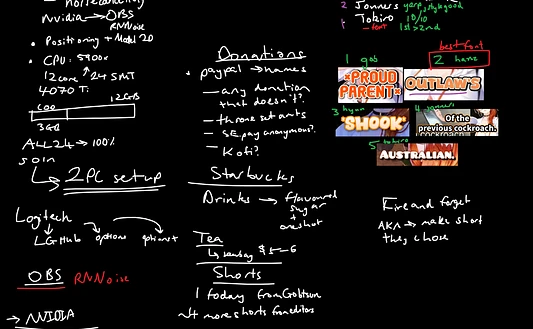 Nvidia → OBS
RNNoise
• Positioning + Model 2D
• CPU: 5900x
12core 24 SMT
4070 Ti
12GB
3GB
ALL24 → 100%
2PC setup
Logitech
LGHub options options+
OBS RNNoise
→ NVIDIA
Donations
• paypal → names
— any donation
that doesn't?
— throne set ants
— SE pay anonymous?
— Kofi?
Starbucks
Drinks → flavoured
sugar
+
one shot
Tea
↳ sensay $5-6
Shorts
1 today from Gobtsun
~4 more shorts from editors
2 Jonners yarp, style good
1 Tokiro 10/10
- font 1st > 2nd
best font
1 gob
2 hanz
"PROUD
PARENT"
OUTLAW'S
3 hyun
4 jonners
"SHOOK"
Of the
previous cockroach.
5 tokiro
AUSTRALIAN.
Fire and forget
AKA → make short
they chose